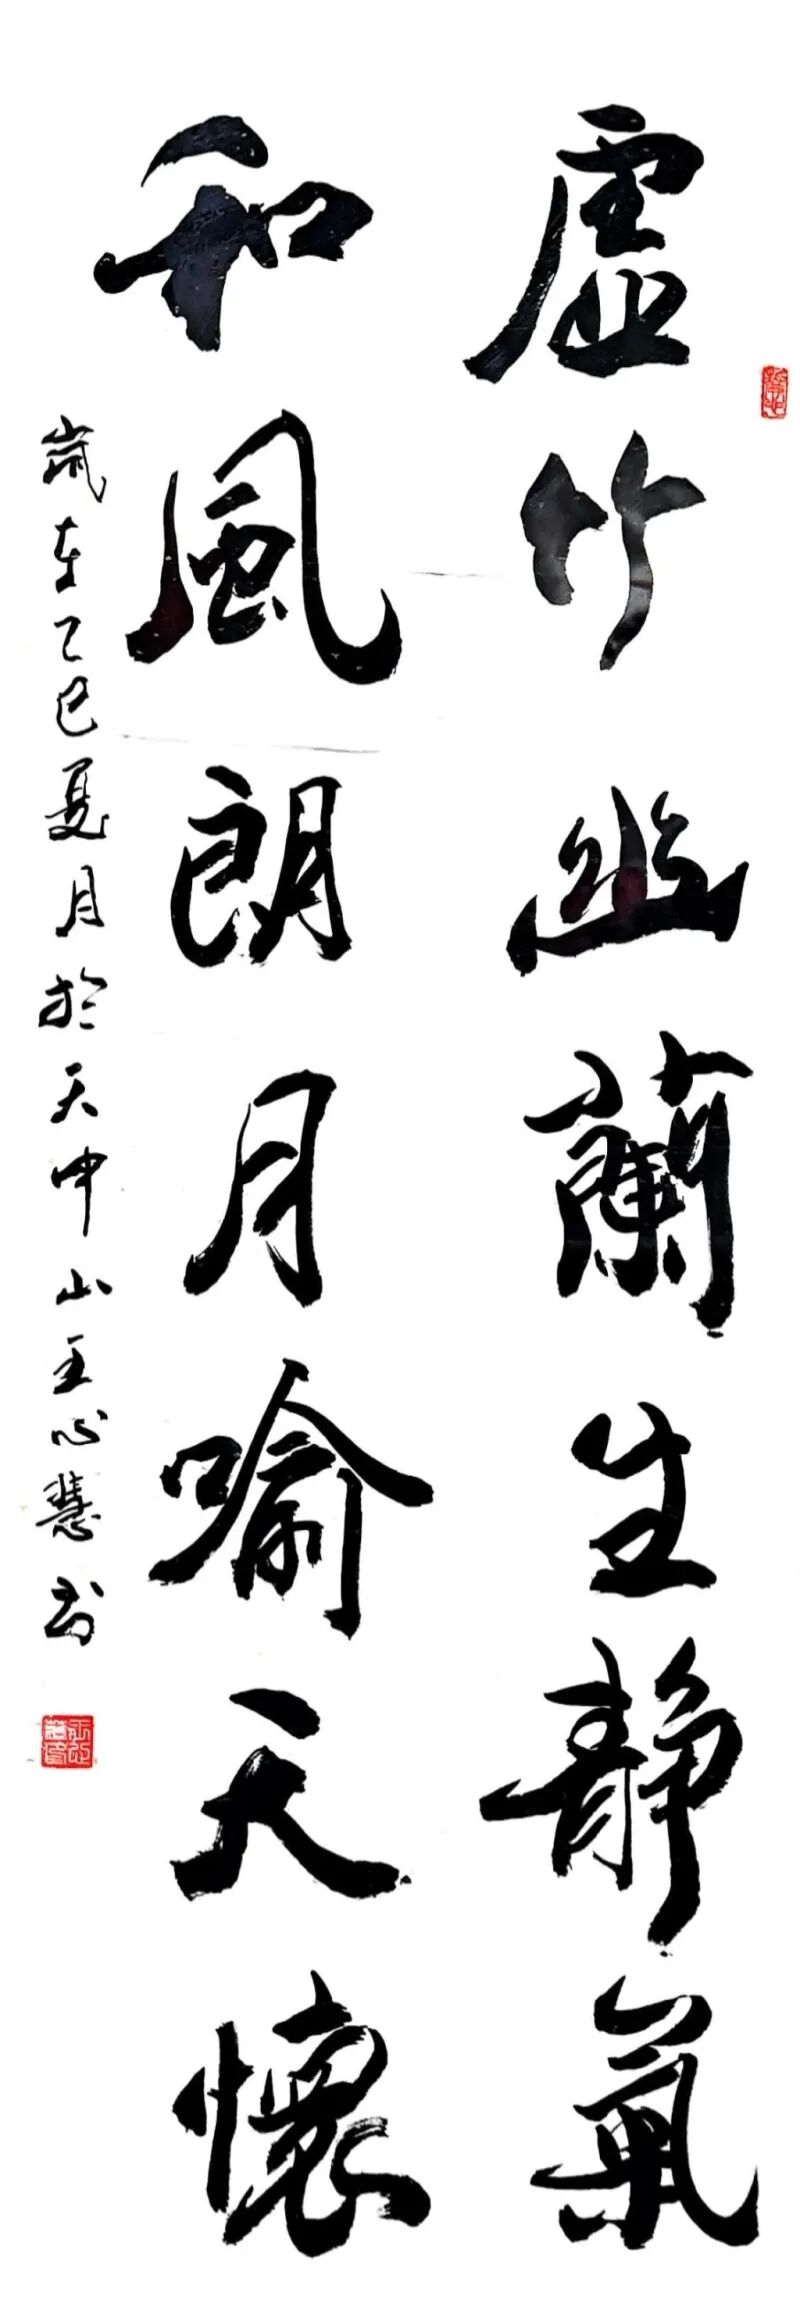 虚竹幽蘭生静氣
和風朗月喻天懷
歲在乙巳夏月於天中山王心慧书